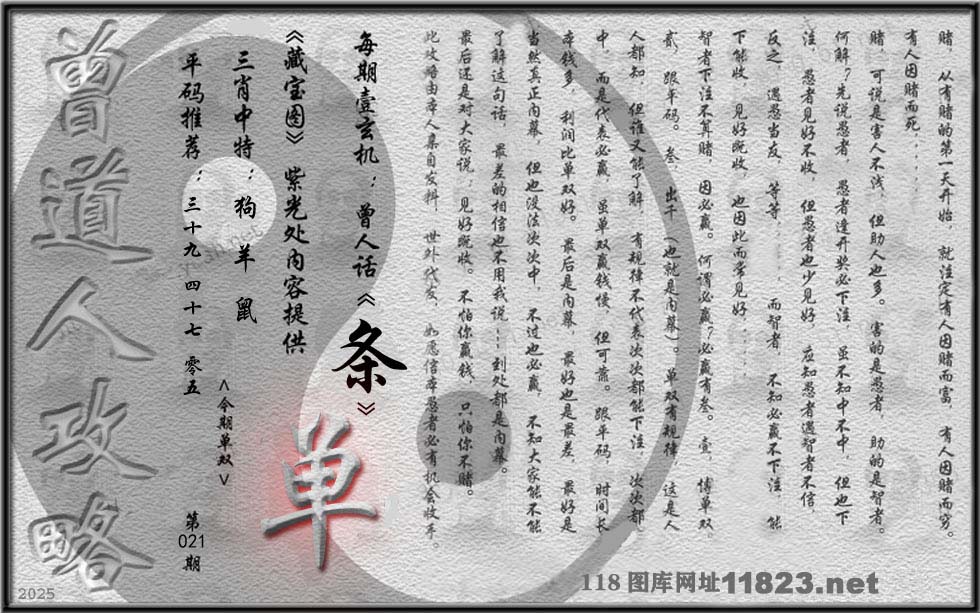 赌，从有赌的第一天开始，就注定有人因赌而富，有人因赌而穷。
有人因赌而死．．．．．．
赌，可说是害人不浅，但助人也多。害的是愚者，助的是智者。
何解？先说愚者，愚者逢开奖必下注，虽不知中不中，但也下
注，愚者见好不收，但愚者也少见好，应知愚者遇智者不信，
反之，遇愁当友，等等．．．．．．而智者，不知必赢不下注，能
下能收，见好既收，也因此而常见好．．．．．．
智者下注不算赌，因必赢。何谓必赢？必赢有叁。壹，博单双，
贰，跟平码。叁，出千（也就是内幕）。单双有规律，这是人
人都知，但谁又能了解，有规律不代表次次都能下注，次次都
中，而是代表必赢，虽单双赢钱慢，但可靠。跟平码，时间长，
本钱多，利润比单双好。最后是内幕，最好也是最差，最好是
当然真正内幕，但也没法次次中，不过也必赢，不知大家能不能
了解这句话，最差的相信也不用我说┅到处都是内幕。
最后还是对大家说；见好既收。不怕你赢钱，只怕你不赌。
此攻略由本人集自发料，世外代友，如愿信本愚者必有机会收手。
每期壹玄机：曾人话《条》
单
《藏宝图》紫光处内容提供
三肖中特：狗羊鼠
<今期单双>
平码推荐：三十九 四十七 零五
第021期
曾道人攻略
2025
118图库网址11823.net